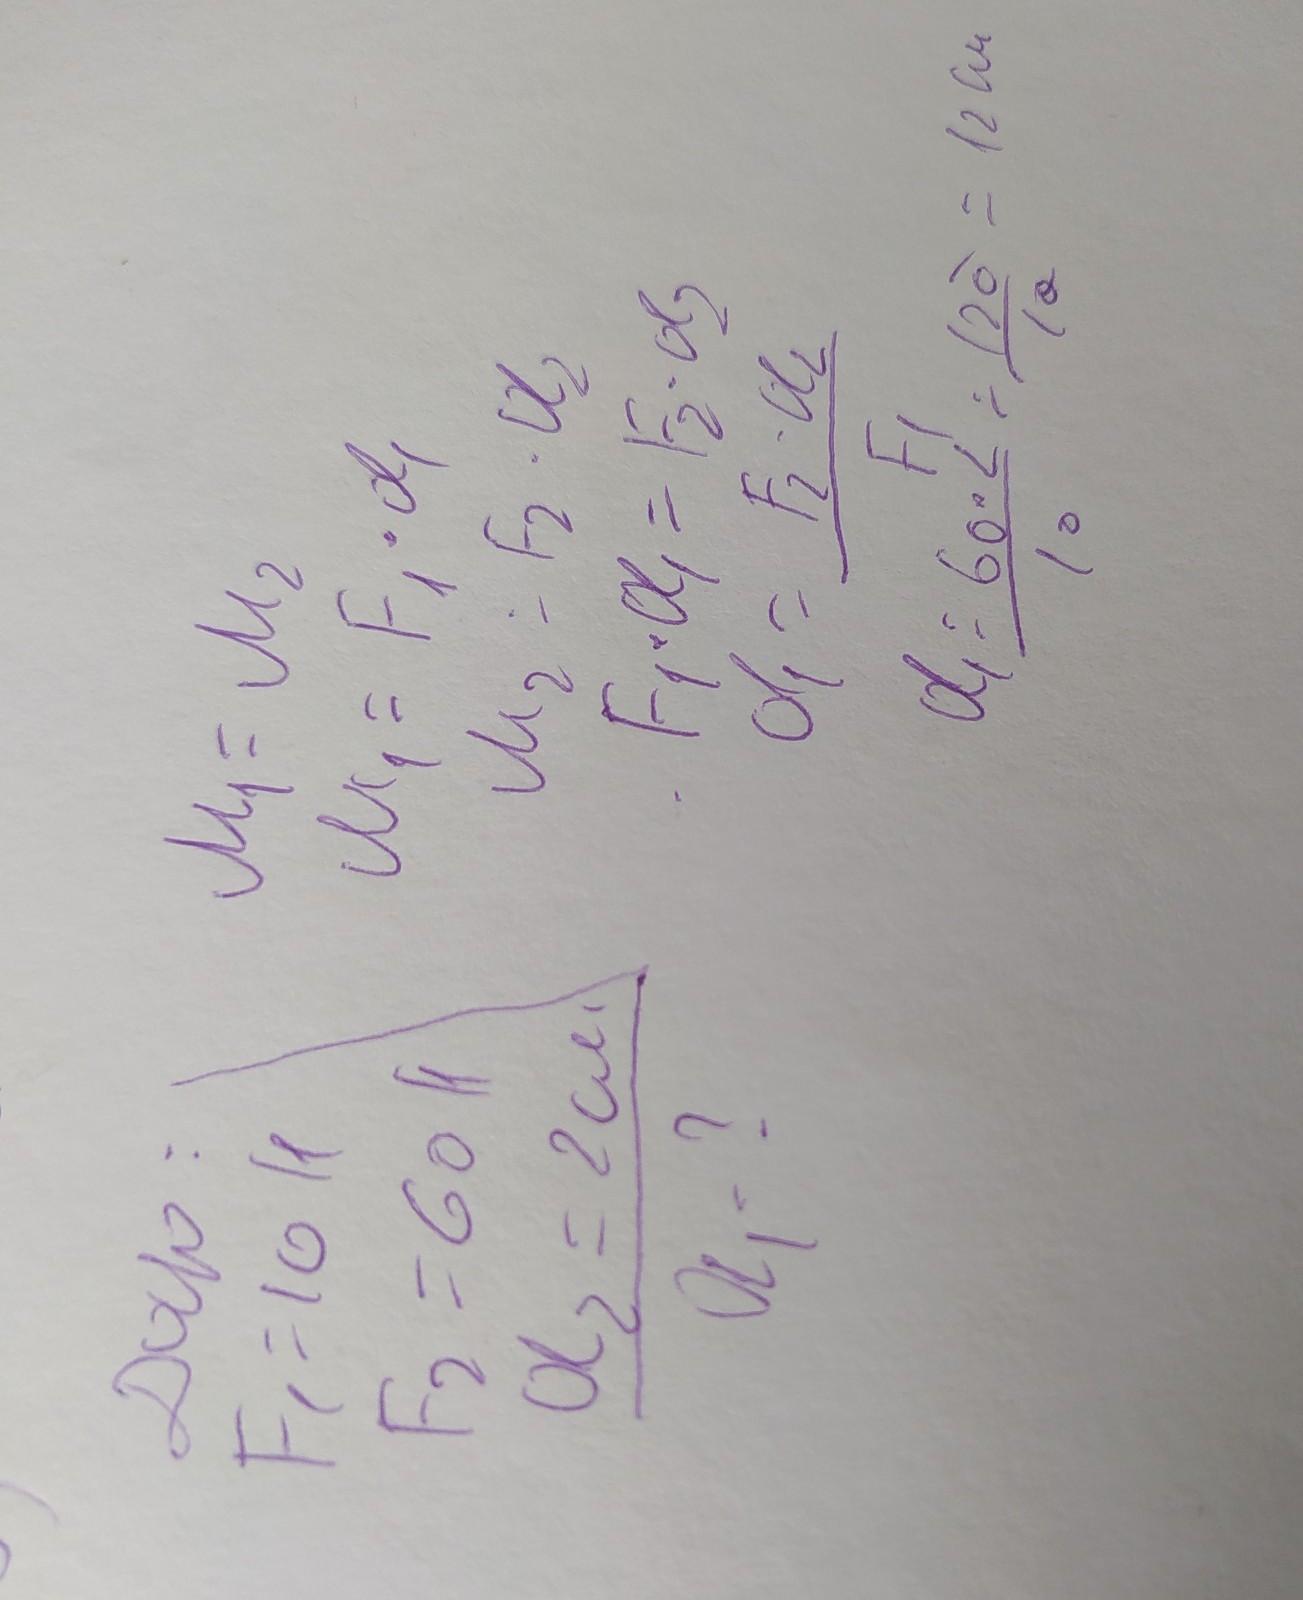 Дано:
F1 = 10 Н
F2 = 60 Н
d2 = 2 см.
d1 - ?
M1 = M2
M1 = F1 · d1
M2 = F2 · d2
F1 · d1 = F2 · d2
d1 = F2 · d2
F1
d1 = 60 · 2 = 120 = 12 см
10 10